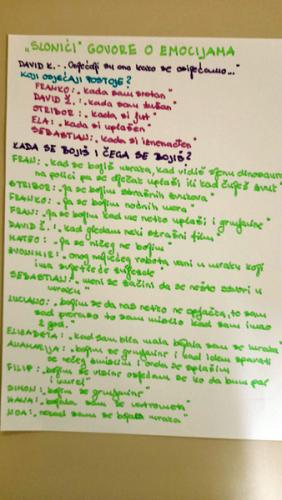 „SLONIĆI" GOVORE O EMOCIJAMA
DAVID K.-„Osjećaji su ono kako se osjećamo..."
KOJI OSJEĆAJI POSTOJE?
FRANKO: „kada sam sretan"
DAVID Ž.: „kada sam tužan"
OTRIBOR: „kada si ljut"
ELA: „kada si uplašen"
SEBASTIJAN: „kada si iznenađen"
KADA SE BOJIŠ I ČEGA SE BOJIŠ?
FRAN: „kad se bojiš mraka, kad vidiš sjenu dinosaura
na polici pa se dječak uplaši ili kad čuješ zvuk"
STRIBOR: „ja se bojim strašnih zvukova"
FRANKO: „ja se bojim noćnih mora"
FRAN: „ja se bojim kad me netko uplaši i grmljavine"
DAVID Ž.: „kad gledam neki strašni film"
MATEO: „ja se ničeg ne bojim"
ZVONIMIR: „onog nečijeg robota vani u mraku koji
ima svjetleće"
SEBASTIJAN: „meni se čini da se nešto stvori u
mraku"
LUCIANO: „bojim se da nas netko ne opljačka, to sam
sad to sam mislio kad sam imao
2 god."
ELIZABETA: „kad sam bila mala bojala sam se mraka"
ANAMARIJA: „bojim se grmljavine i kad idem spavati
se nečeg smislim i onda se uplašim"
FILIP: „bojim se visine osjećam se ko da budem pao
i umrel"
SIMON: „bojim se grmljavine"
HANA: „bojala sam se vatrometa"
NOA: „nekad sam se bojala mraka"